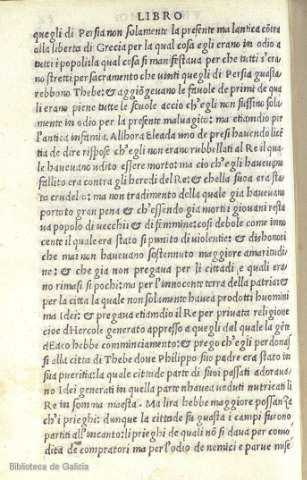 LIBRO
quegli di Persia non solamente la presente ma lantica cõtra
alla liberta di Grecia per la qual cosa egli erano in odio a
tutti i popoli: la qual cosa si manifestaua per che tutti s'era
no stretti per sacramento che uinti quegli di Persia guasta
rebbono Thebe: & aggiõgeuano le fauole de primi de qua
li erano piene tutte le scuole accio ch'egli non fussino sola
mente in odio per la presente maluagita: ma etiamdio per
l'antica infamia. Allhora Eleada uno de presi hauendo licẽ
tia de dire rispose ch'egli non erano rubbellati al Re il qua
le haueuano udito essere morto: ma cio ch'egli haueuano
fallito era contra gli heredi del Re: & che lla sua era sta
to crudel o: ma non tradimento della quale gia haueuano
portato gran pena & ch'essendo gia morti i giouani resta
ua popolo di uecchi & di femmine: cosi debole come inno
cente il quale era stato si punito di uiolentie: & dishonori
che mai non haueuano sostennuto maggiore amaritudi
ne: & che gia non pregaua per li cittadi e quali era
no rimasi si pochi: ma per l'innocent terra della patria: &
per la citta la quale non solamente hauea prodotti huomini
ma Idei: & pregaua etiamdio il Re per priuata religione
cioe d'Hercole generato appresso a quegli dal quale la gẽte
d'Eaco hebbe comminciamento: & prego ch'egli perdonas
si alla citta di Thebe doue Philippo suo padre era stato in
sua pueritia: la quale citta de parte di suoi passati adoraua
no Idei generati in quella parte n'hauea ueduti nutricati li
Re in somma maesta. Ma lira hebbe maggiore possanza
ch'i prieghi: dunque la citta de fu guasta i campi furono
partiti all'incanto: li prieghi de quali nõ si daua per comos
dita de compratori ma per l'odio de nemici e parue mise
Biblioteca de Galicia